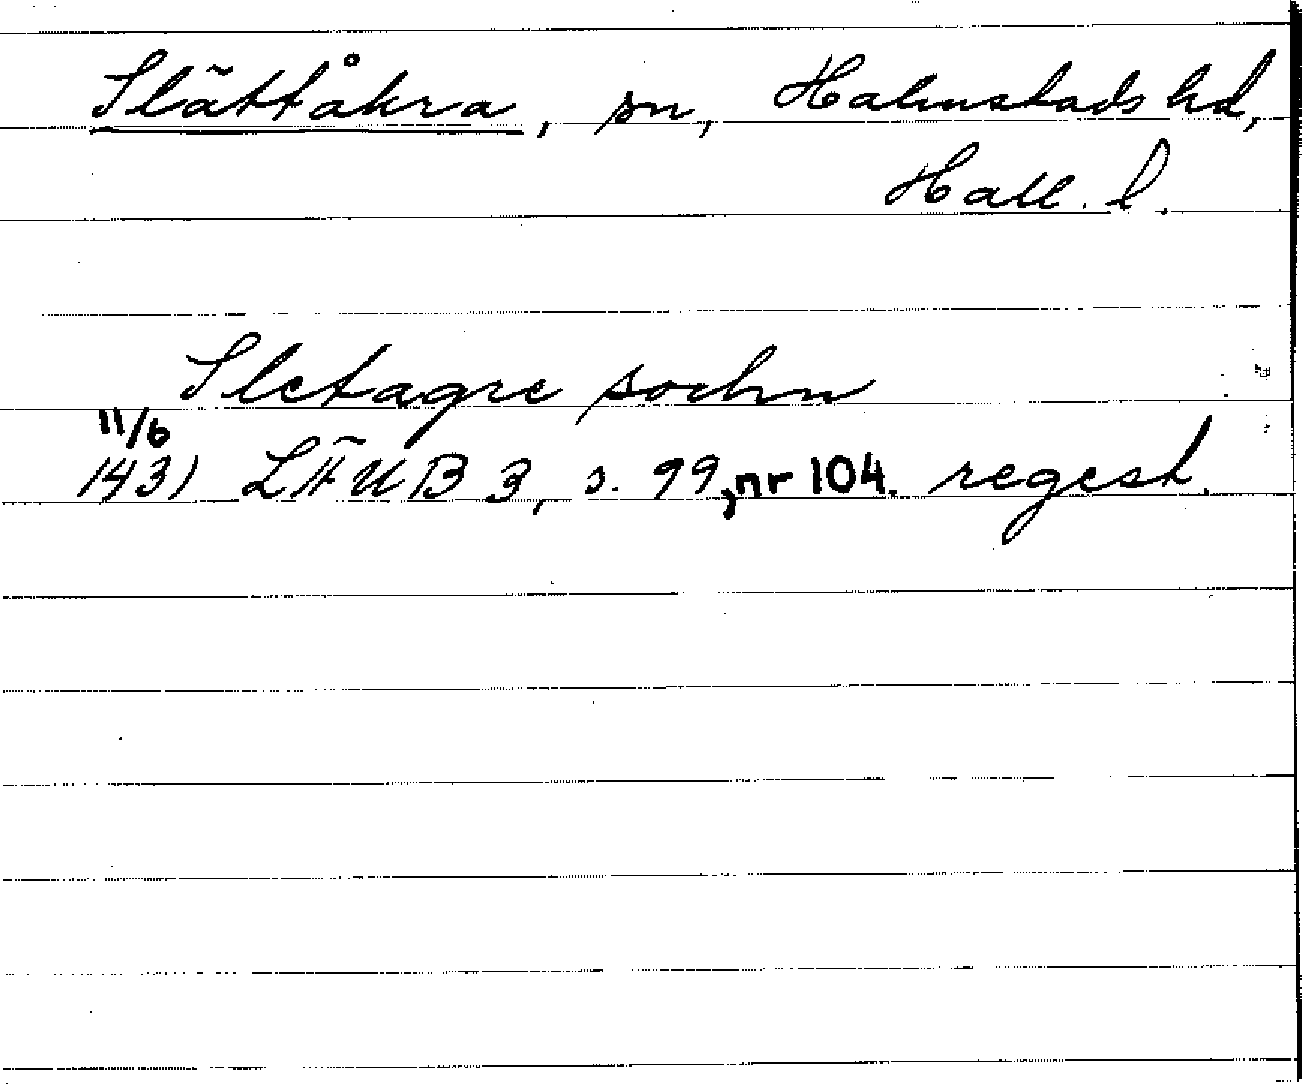 Slättåkra, sn, Halmstads hd,
Hall. l.
Sletagre sochn
11/6
1431 LÄUB 3, s. 99, nr 104. regest.